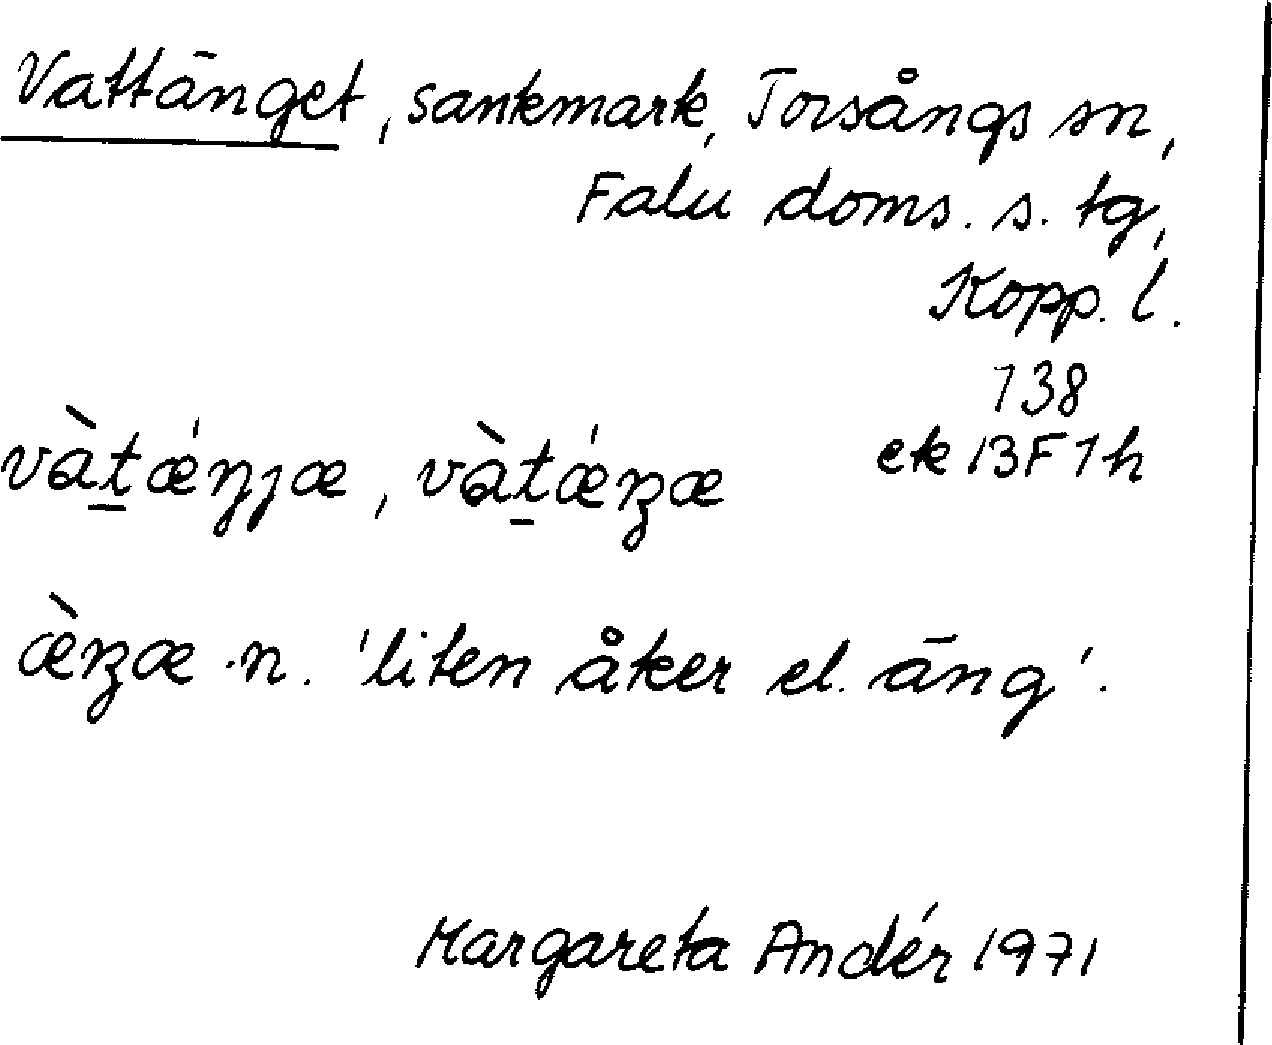 Vattänget, sankmark, Torsångs sn,
Falu doms. s. tg,
Kopp. l.
138
ek 13F1h
và̱tǽŋjæ, và̱tǽŋæ
æ̀ŋæ n. 'liten åker el. äng'.
Margareta Andér 1971